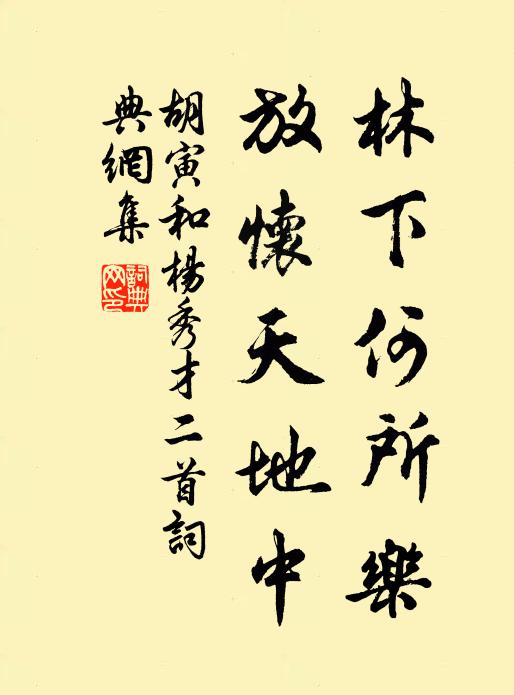 林下何所樂
放懷天地中
胡寅和楊秀才二首詞
典網集
詞典網印